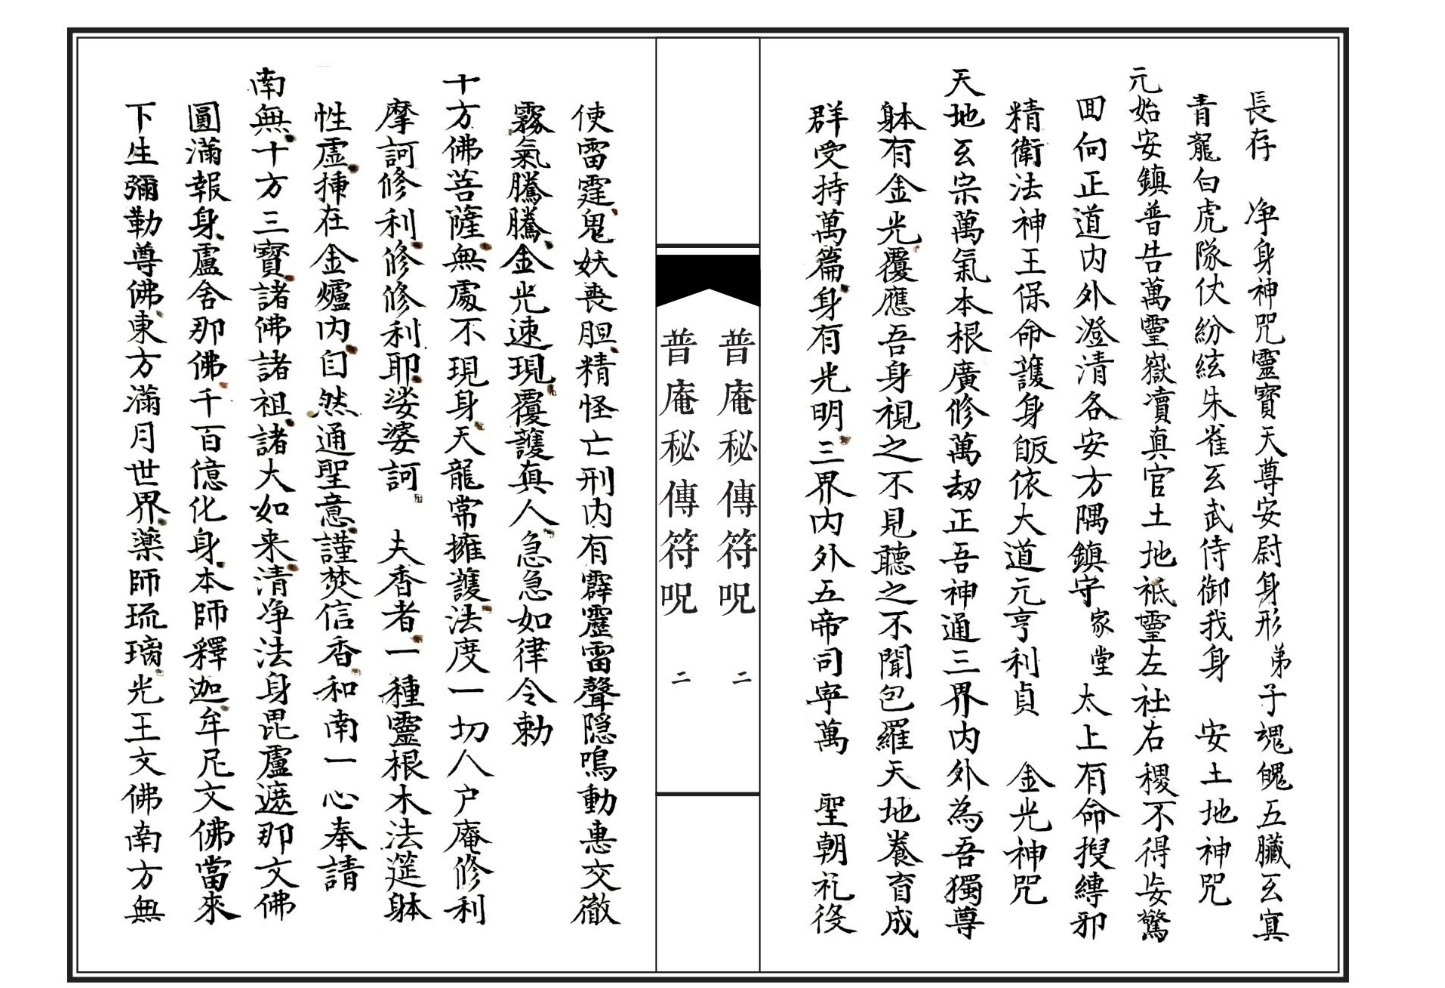 長存　净身神咒靈寶天尊安尉身形弟子魂魄五臟玄寘
青龍白虎隊伏紛紜朱雀玄武侍御我身　安土地神咒
元始安鎮普告萬靈嶽瀆真官土地祗靈左社右稷不得妄驚
囬向正道内外澄清各安方隅鎮守家堂太上有命搜縛邪
精衛法神王保命護身皈依大道元亨利貞　金光神咒
天地玄宗萬氣本根廣修萬刼正吾神通三界内外為吾獨尊
躰有金光覆應吾身視之不見聽之不聞包羅天地養育成
群受持萬篇身有光明三界内外五帝司寜萬　聖朝礼役
普庵秘傳符呪　二
普庵秘傳符呪　二
使雷霆鬼妖喪胆精怪亡刑内有霹靂雷聲隠鳴動惠交徹
霧氣騰騰金光速現覆護眞人急急如律令勅
十方佛菩薩無處不現身天龍常擁護法度一切人户庵修利
摩訶修利修修利耶娑婆訶　夫香者一種靈根木法莚躰
性虛揷在金爐内自然通聖意謹焚信香和南一心奉請
南無十方三寶諸佛諸祖諸大如来清净法身毘盧遮那文佛
圓滿報身盧舍那佛千百億化身本師釋迦牟尼文佛當來
下生彌勒尊佛東方滿月世界藥師琉璃光王文佛南方無